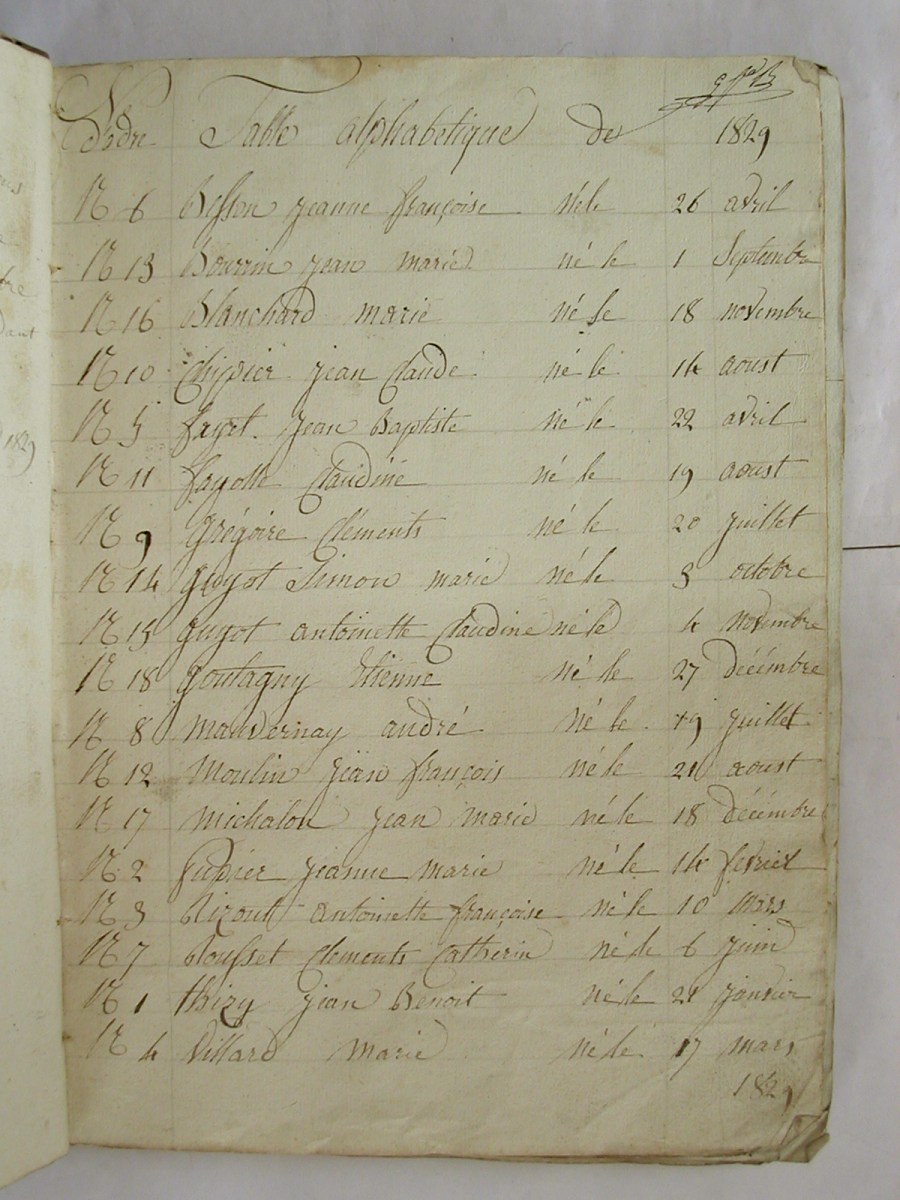 N d'odre Table alphabetique de 1829
N 6 Besson jeanne françoise né le 26 avril
N 13 Bourrin jean marie né le 1 Septembre
N 16 Blanchard marie né le 18 novembre
N 10 Chipier jean Claude né le 14 aoust
N 5 fayet jean Baptiste né le 22 avril
N 11 fayolle Claudine né le 19 aoust
N 9 Grégoire Cléments né le 20 juillet
N 14 guyot Simon marie né le 5 octobre
N 15 guyot antoinette Claudine né le 4 novembre
N 18 goutagny Etienne né le 27 décémbre
N 8 mauvernay andré né le 19 juillet
N 12 Moulin jean françois né le 21 aoust
N 17 michalon jean marie né le 18 décémbre
N 2 jeanne marie né le 14 fevrier
N 3 antoinette françoise né le 10 mars
N 7 Rousset Clements Catherin né le 6 juin
N 1 thizy jean Benoit né le 21 janvier
N 4 Villard marie né le 17 mars
1829
1829